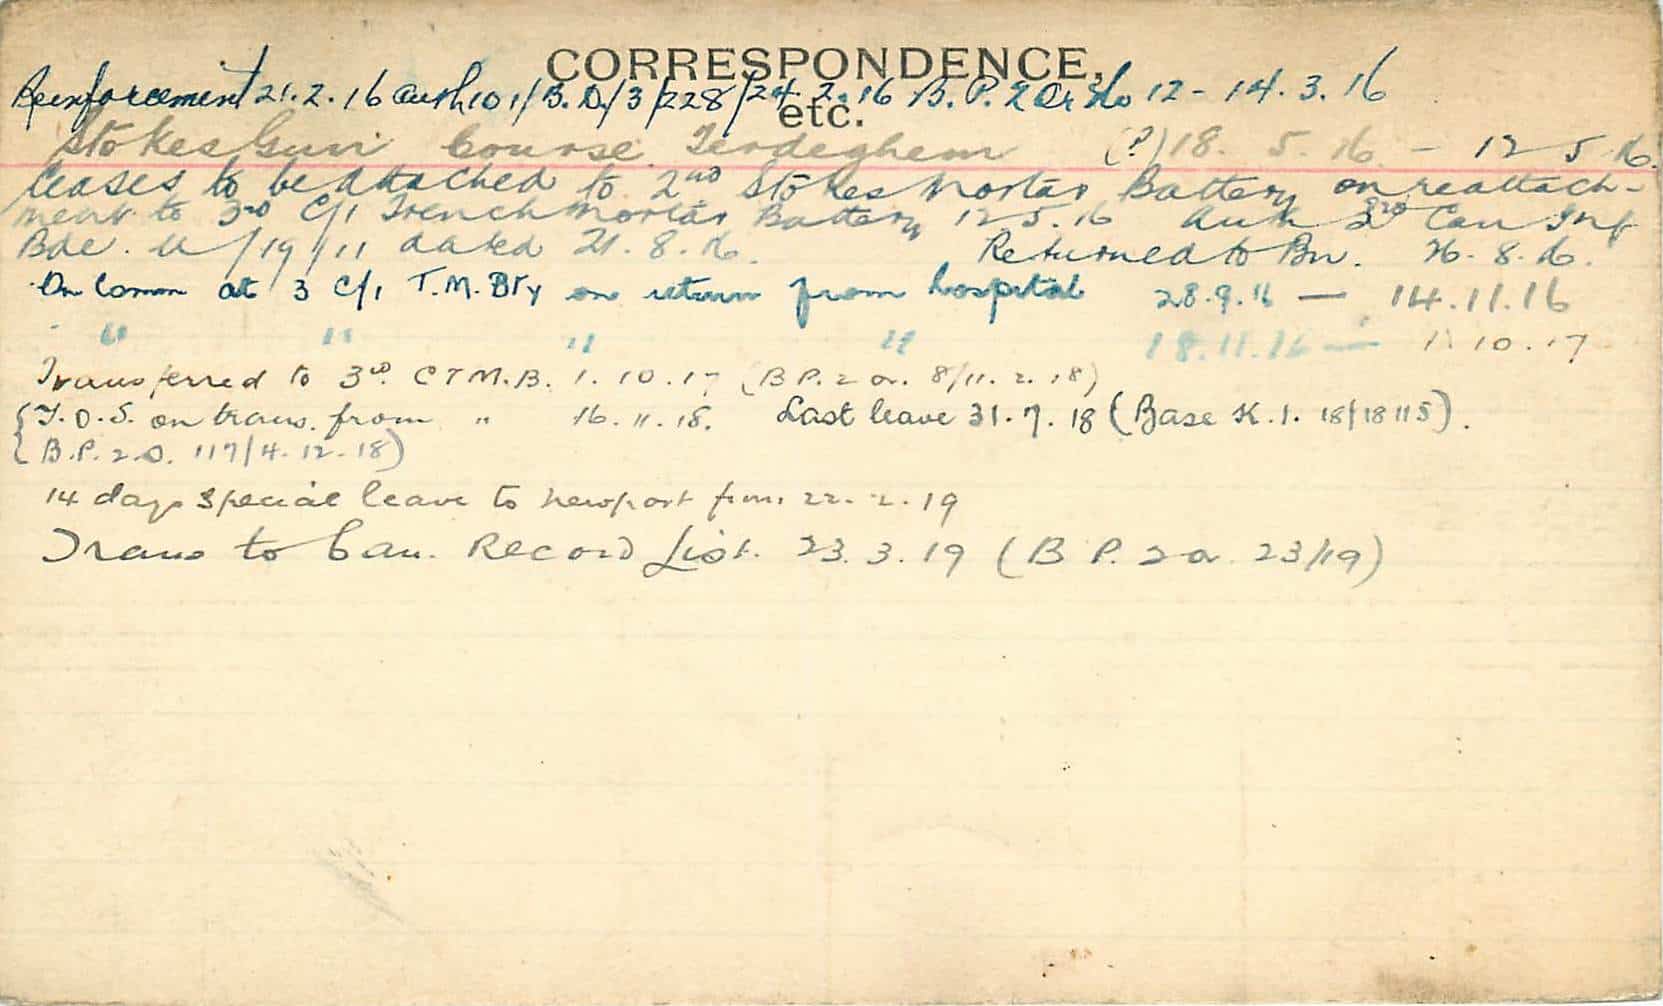 CORRESPONDENCE,
etc.
Reinforcement 21.2.16 Auth 101/B.D/3/228/24.2.16 B.P.2 Or No 12 - 14.3.16
Stokes Gun Course Terdeghem (?) 18. 5. 16 - 12 5 16.
Ceases to be attached to 2nd Stokes Mortar Battery on reattach-
ment to 3rd C/1 Trench Mortar Battery 12.5.16 Auth Can Inf
Bde. /19/11 dated 21.8.16. Returned to Bn. 26.8.16.
On Comm at 3 C/1 T.M. Bty on return from hospital 28.9.16 — 14.11.16
" " " " 18.11.16 — 1.10.17
Transferred to 3rd. C T M.B. 1.10.17 (B P. 2 o. 8/11.2.18)
{T.O.S. on trans. from " 16.11.18. Last leave 31.7.18 (Base K.1. 18/18115).
{B.P. 2.O. 117/4.12.18)
14 days special leave to Newport from 22.2.19
Trans to Can. Record List. 23.3.19 (B P. 2 o. 23/19)